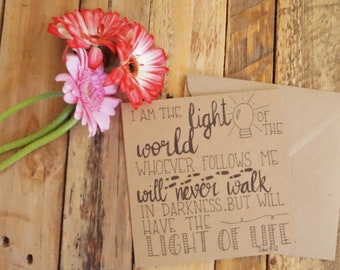 I AM THE light
OF THE
world
WHOEVER FOLLOWS ME
will never walk
IN DARKNESS, BUT WILL
HAVE THE
LIGHT OF LIFE